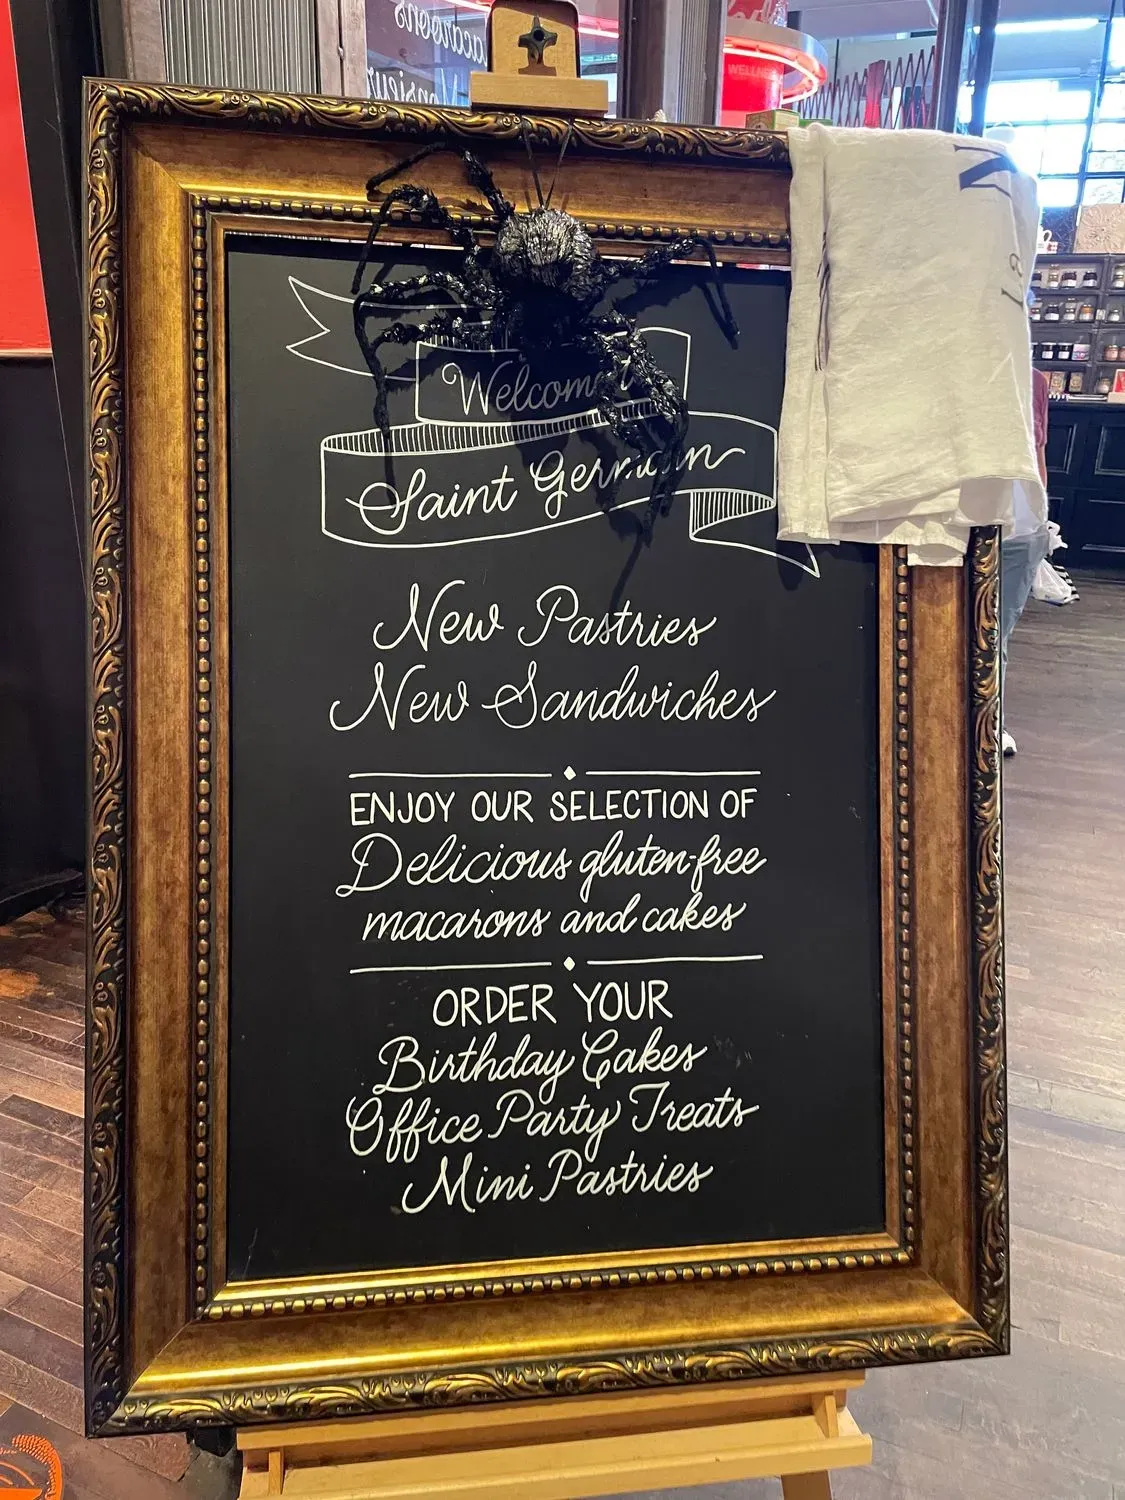 acaroons
Monsieur
WELLNE
Welcome
Saint Germain
New Pastries
New Sandwiches
ENJOY OUR SELECTION OF
Delicious gluten-free
macarons and cakes
ORDER YOUR
Birthday Cakes
Office Party Treats
Mini Pastries